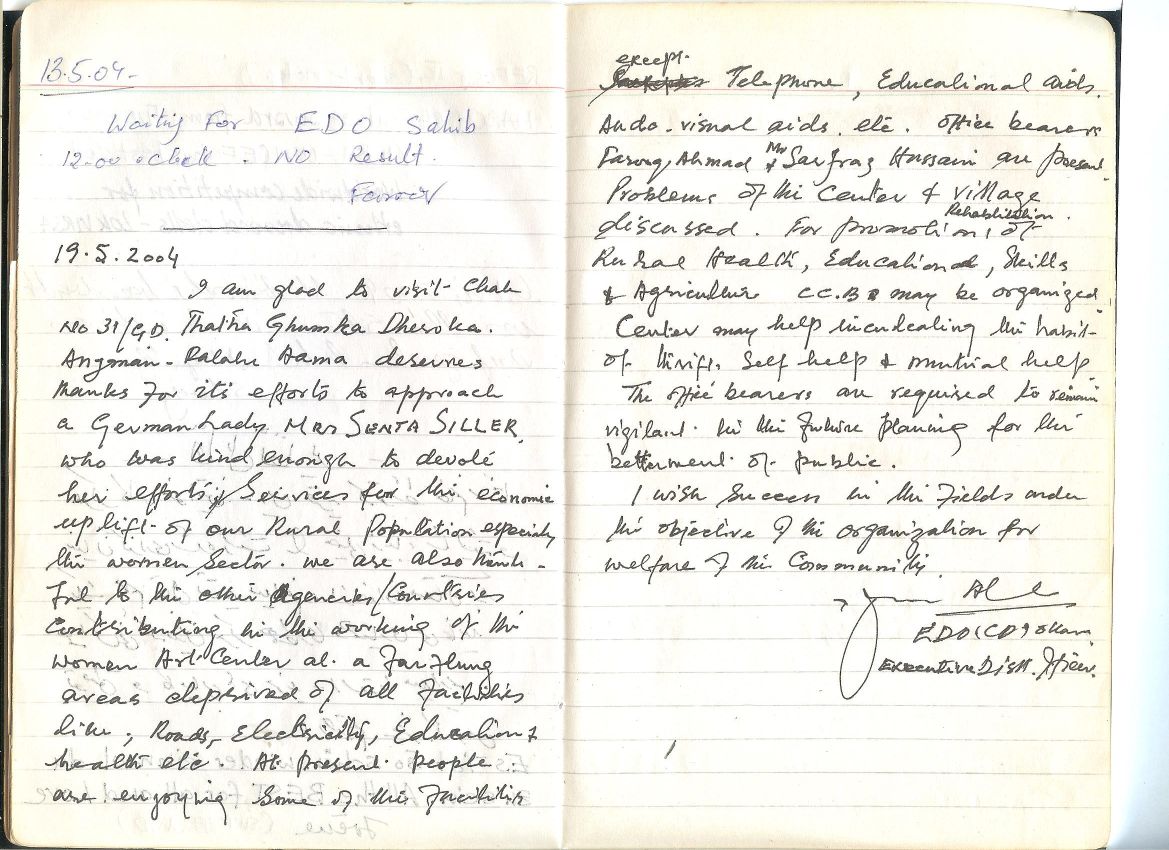 13.5.04-
Waiting For EDO Sahib
12-00 oclock. NO Result.
Farooq
19.5.2004
I am glad to visit Chak
No 31/GD. Thatha Ghumka Dheroka.
Angman-Falahe Aama deserves
thanks for its efforts to approach
a German Lady MRS SENTA SILLER,
who was kind enough to devote
her efforts, Services for the economic
uplift of our Rural Population especialy
the women Sector. we are also thank-
ful to the other Agencies/Countries
Contributing in the working of the
women Art Center at a Far flung
areas deprived of all Facilities
like, Roads, Electricity, Education &
health etc At present people
are enjoying Some of the Facilities
except.
Telephone, Educational aids.
Audo. visual aids. etc. office bearers
Farooq Ahmad & Mr Sarfraz Hussain are present
Problems of the Center & village
discussed. For promotion, of Rehabilitation.
Rural Health, Educational, Skills
& Agriculture CC.B may be organized
Center may help incudcating the habit
of thrift, Self help & mutual help
The office bearers are required to remain
vigilant in the Future planing for the
betterment of public.
I wish Success in the Fields under
the objective of the organization for
welfare of the Community.
EDO(CD) Okara
Executive Distt. Officer.